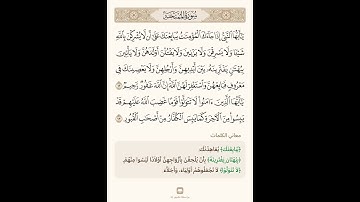 سُورَةُ المُمْتَحنَة
يَٰٓأَيُّهَا ٱلنَّبِيُّ إِذَا جَآءَكَ ٱلۡمُؤۡمِنَٰتُ يُبَايِعۡنَكَ عَلَىٰٓ أَن لَّا يُشۡرِكۡنَ بِٱللَّهِ
شَيۡـٔٗا وَلَا يَسۡرِقۡنَ وَلَا يَزۡنِينَ وَلَا يَقۡتُلۡنَ أَوۡلَٰدَهُنَّ وَلَا يَأۡتِينَ
بِبُهۡتَٰنٖ يَفۡتَرِينَهُۥ بَيۡنَ أَيۡدِيهِنَّ وَأَرۡجُلِهِنَّ وَلَا يَعۡصِينَكَ فِي
مَعۡرُوفٖ فَبَايِعۡهُنَّ وَٱسۡتَغۡفِرۡ لَهُنَّ ٱللَّهَۚ إِنَّ ٱللَّهَ غَفُورٞ رَّحِيمٞ ١٢
يَٰٓأَيُّهَا ٱلَّذِينَ ءَامَنُواْ لَا تَتَوَلَّوۡاْ قَوۡمًا غَضِبَ ٱللَّهُ عَلَيۡهِمۡ قَدۡ
يَئِسُواْ مِنَ ٱلۡأٓخِرَةِ كَمَا يَئِسَ ٱلۡكُفَّارُ مِنۡ أَصۡحَٰبِ ٱلۡقُبُورِ ١٣
معاني الكلمات
﴿يُبَايِعْنَكَ﴾ يُعَاهِدْنَكَ.
﴿بِبُهْتَانٍ يَفْتَرِينَهُ﴾ بِأَنْ يُلْحِقْنَ بِأَزْوَاجِهِنَّ أَوْلَادًا لَيْسُوا مِنْهُمْ.
﴿لَا تَتَوَلَّوْا﴾ لَا تَجْعَلُوهُمْ أَوْلِيَاءَ، وَأَخِلَّاءَ.